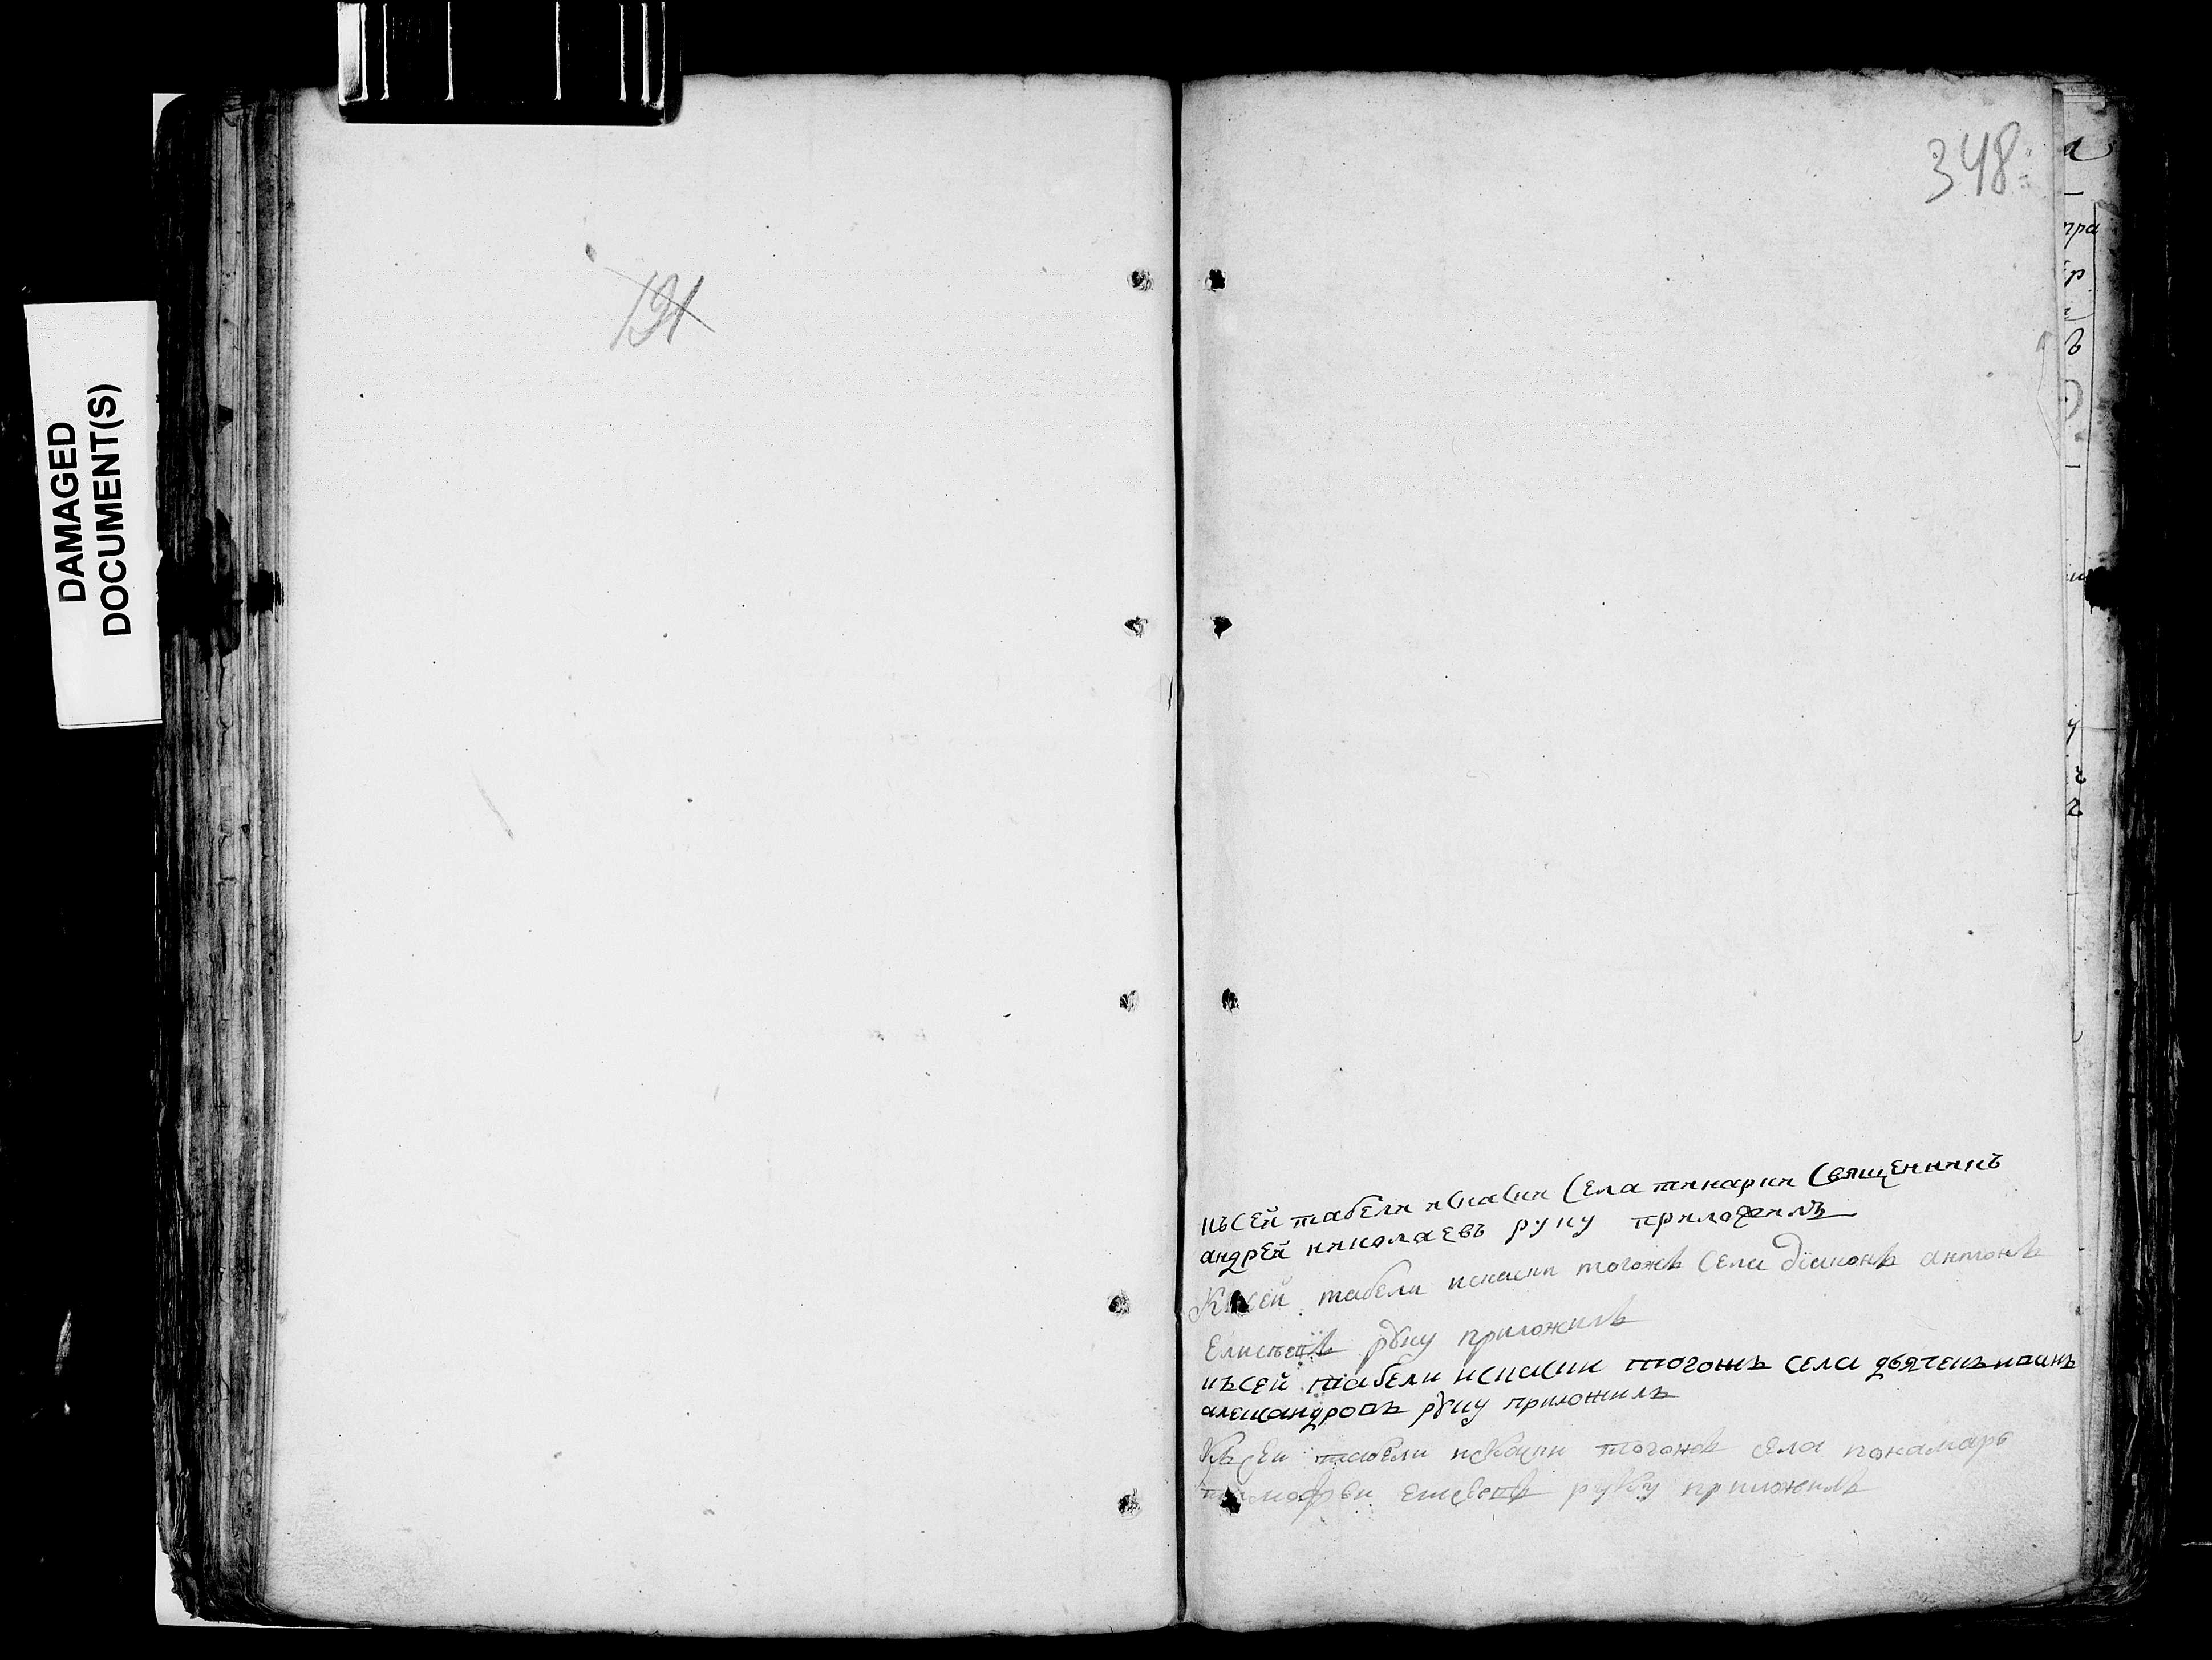 DAMAGED
DOCUMENT(S)
191
348
къ сей табели и сказки села тинарки священникъ
андрей николаевъ руку приложилъ
Къ сей табели искаски тогожъ села дїаконъ антонъ
руку приложилъ
къ сей табели искаски тогожъ села дьячекъ иванъ
александровъ руку приложилъ
Къ сеи табели искаски тогожъ села понамарь
руку приложилъ